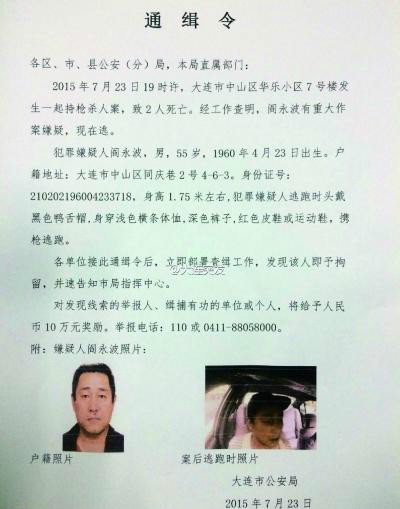 通 缉 令
各区、市、县公安（分）局，本局直属部门：
2015年7月23日19时许，大连市中山区华乐小区7号楼发
生一起持枪杀人案，致2人死亡。经工作查明，阎永波有重大作
案嫌疑，现在逃。
犯罪嫌疑人阎永波，男，55岁，1960年4月23日出生。户
籍地址：大连市中山区同庆巷2号4-6-3。身份证号：
210202196004233718，身高1.75米左右,犯罪嫌疑人逃跑时头戴
黑色鸭舌帽,身穿浅色横条体恤,深色裤子,红色皮鞋或运动鞋，携
枪逃跑。
各单位接此通缉令后，立即部署查缉工作，发现该人即予拘
留，并速告知市局指挥中心。
@大连晚友
对发现线索的举报人、缉捕有功的单位或个人，将给予人民
币10万元奖励。举报电话：110或0411-88058000。
附：嫌疑人阎永波照片：
户籍照片 案后逃跑时照片
大连市公安局
2015年7月23日